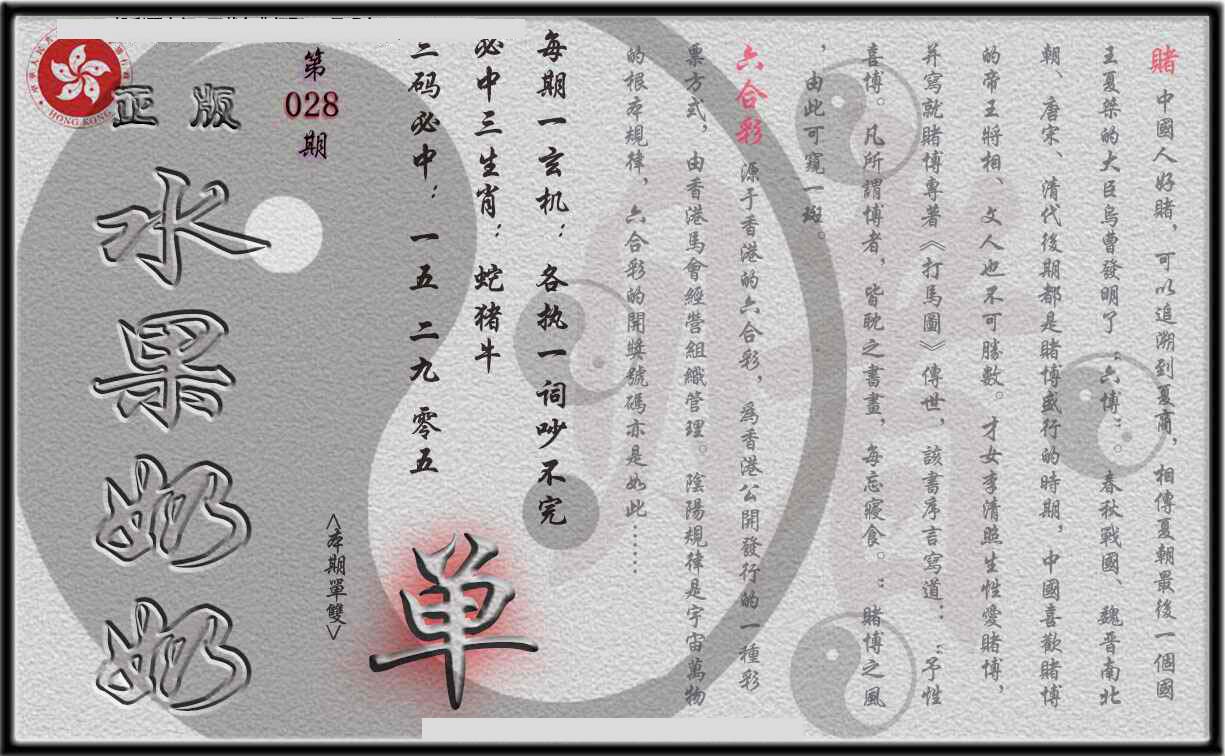 賭 中國人好賭，可以追溯到夏商，相傳夏朝最後一個國
王夏桀的大臣烏曹發明了“六博”。春秋戰國、魏晉南北
朝、唐宋、清代後期都是賭博盛行的時期，中國喜歡賭博
的帝王將相、文人也不可勝數。才女李清照生性愛賭博，
并寫就賭博專著《打馬圖》傳世，該書序言寫道：“予性
喜博。凡所謂博者，皆耽之晝書，每忘寢食。”賭博之風
，由此可窺一斑。
六合彩 源于香港的六合彩，為香港公開發行的一種彩
票方式，由香港馬會經營組織管理。陰陽規律是宇宙萬物
的根本規律，六合彩的開獎號碼亦是如此……
每期一玄机：各执一词吵不完
必中三生肖：蛇猪牛
三码必中：一五 二九 零五
单
<本期單雙>
第
028
期
正版
水果奶奶
HONG KONG